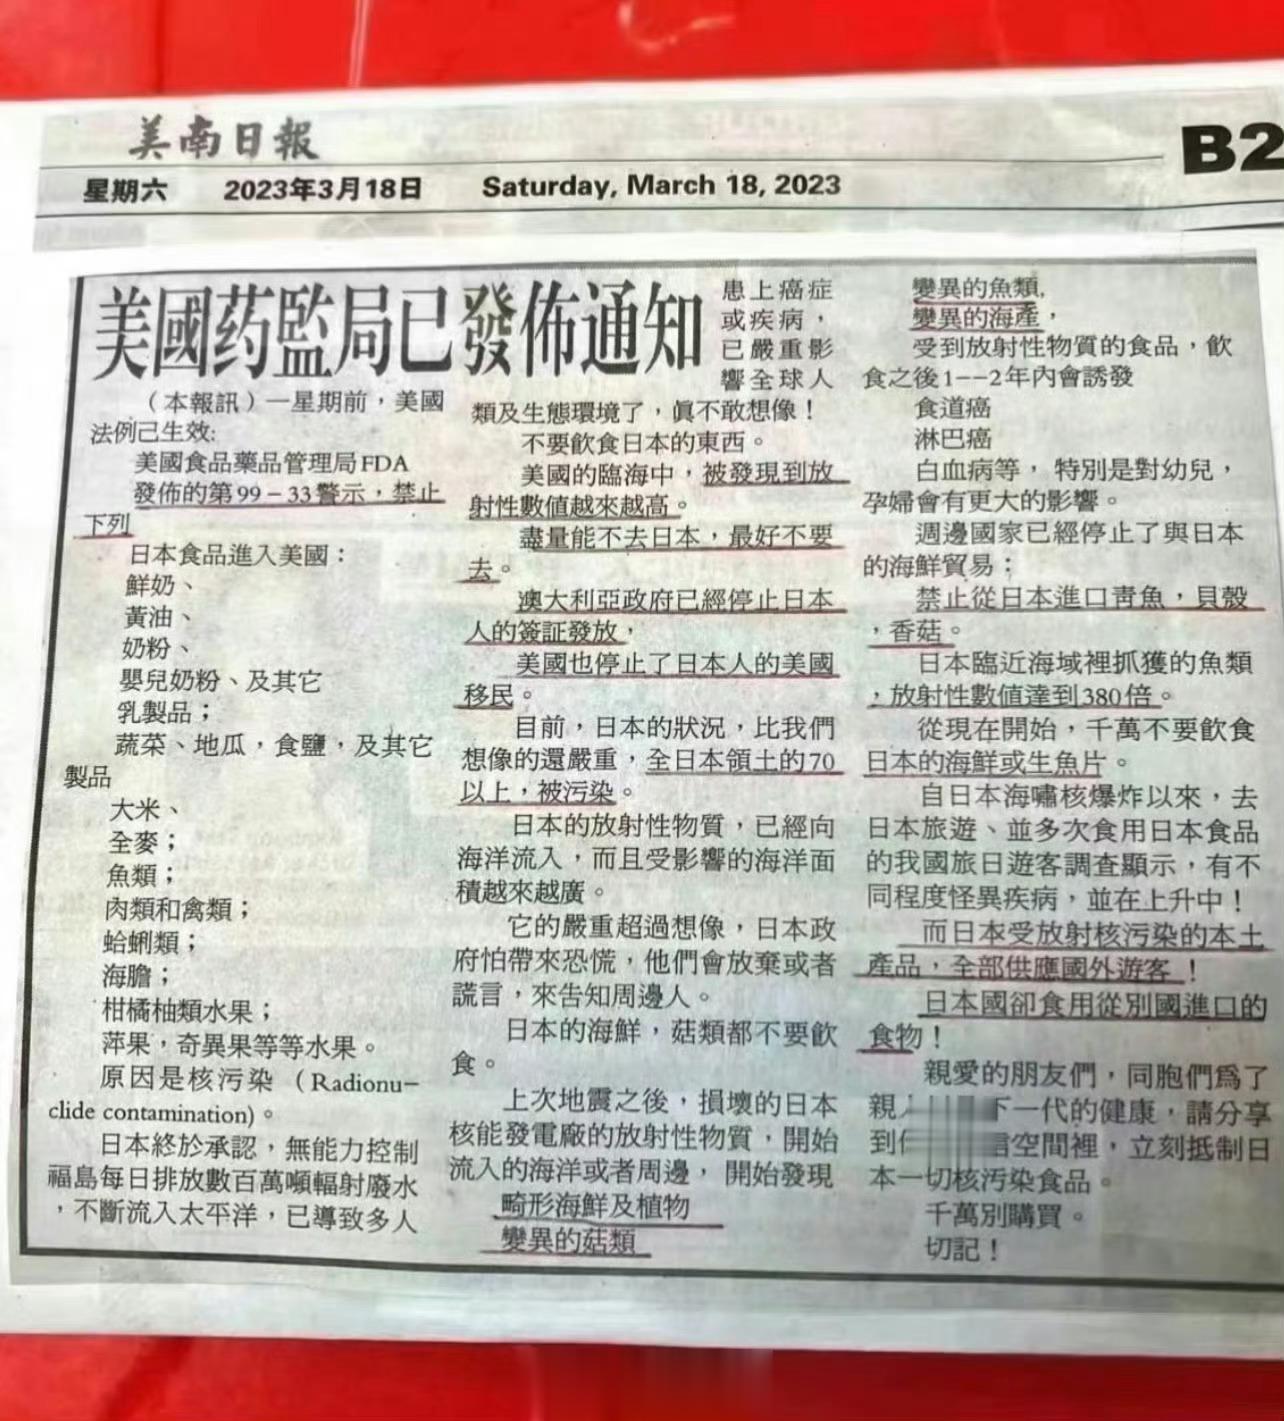 美南日報
B2
星期六 2023年3月18日 Saturday, March 18, 2023
美國药監局已發佈通知
（本報訊）一星期前，美國
法例己生效:
美國食品藥品管理局FDA
發佈的第99－33警示，禁止
下列
日本食品進入美國：
鮮奶、
黃油、
奶粉、
嬰兒奶粉、及其它
乳製品；
蔬菜、地瓜，食鹽，及其它
製品
大米、
全麥；
魚類；
肉類和禽類；
蛤蜊類；
海膽；
柑橘柚類水果；
萍果，奇異果等等水果。
原因是核污染（Radionu－
clide contamination)。
日本終於承認，無能力控制
福島每日排放數百萬噸輻射廢水
，不斷流入太平洋，已導致多人
患上癌症
或疾病，
已嚴重影
響全球人
類及生態環境了，眞不敢想像！
不要飲食日本的東西。
美國的臨海中，被發現到放
射性數值越來越高。
盡量能不去日本，最好不要
去。
澳大利亞政府已經停止日本
人的簽証發放，
美國也停止了日本人的美國
移民。
目前，日本的狀況，比我們
想像的還嚴重，全日本領土的70
以上，被污染。
日本的放射性物質，已經向
海洋流入，而且受影響的海洋面
積越來越廣。
它的嚴重超過想像，日本政
府怕帶來恐慌，他們會放棄或者
謊言，來告知周邊人。
日本的海鮮，菇類都不要飲
食。
上次地震之後，損壞的日本
核能發電廠的放射性物質，開始
流入的海洋或者周邊，開始發現
畸形海鮮及植物
變異的菇類
變異的魚類,
變異的海產，
受到放射性物質的食品，飲
食之後1--2年內會誘發
食道癌
淋巴癌
白血病等，特別是對幼兒，
孕婦會有更大的影響。
週邊國家已經停止了與日本
的海鮮貿易；
禁止從日本進口靑魚，貝殼
，香菇。
日本臨近海域裡抓獲的魚類
，放射性數值達到380倍。
從現在開始，千萬不要飲食
日本的海鮮或生魚片。
自日本海嘯核爆炸以來，去
日本旅遊、並多次食用日本食品
的我國旅日遊客調查顯示，有不
同程度怪異疾病，並在上升中！
而日本受放射核污染的本土
產品，全部供應國外遊客！
日本國卻食用從別國進口的
食物！
親愛的朋友們，同胞們爲了
親 下一代的健康，請分享
到 信空間裡，立刻抵制日
本一切核污染食品。
千萬別購買。
切記！